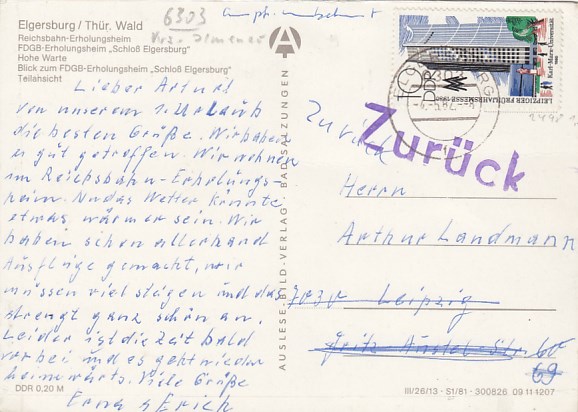 Elgersburg / Thür. Wald
Reichsbahn-Erholungsheim
FDGB-Erholungsheim „Schloß Elgersburg"
Hohe Warte
Blick zum FDGB-Erholungsheim „Schloß Elgersburg"
Teilansicht
6303
Lieber Artur!
Von unserem 1. Urlaub
die besten Grüße. Wir haben
es gut getroffen. Wir wohnen
im Reichsbahn-Erholungs-
heim. Nur das Wetter könnte
etwas wärmer sein. Wir
haben schon allerhand
Ausflüge gemacht, wir
müssen viel steigen und das
strengt ganz schön an.
Leider ist die Zeit bald
vorbei und es geht wieder
heimwärts. Viele Grüße
Erna & Erich
DDR 0,20 M
AUSLESE-BILD-VERLAG · BAD SALZUNGEN
DDR
LEIPZIGER FRÜHJAHRSMESSE
Karl-Marx-Universität
Zurück
Zurück
Herrn
Arthur Landmann
7030 Leipzig
Str. 60
69
III/26/13 · S1/81 · 300826 09 11 1207